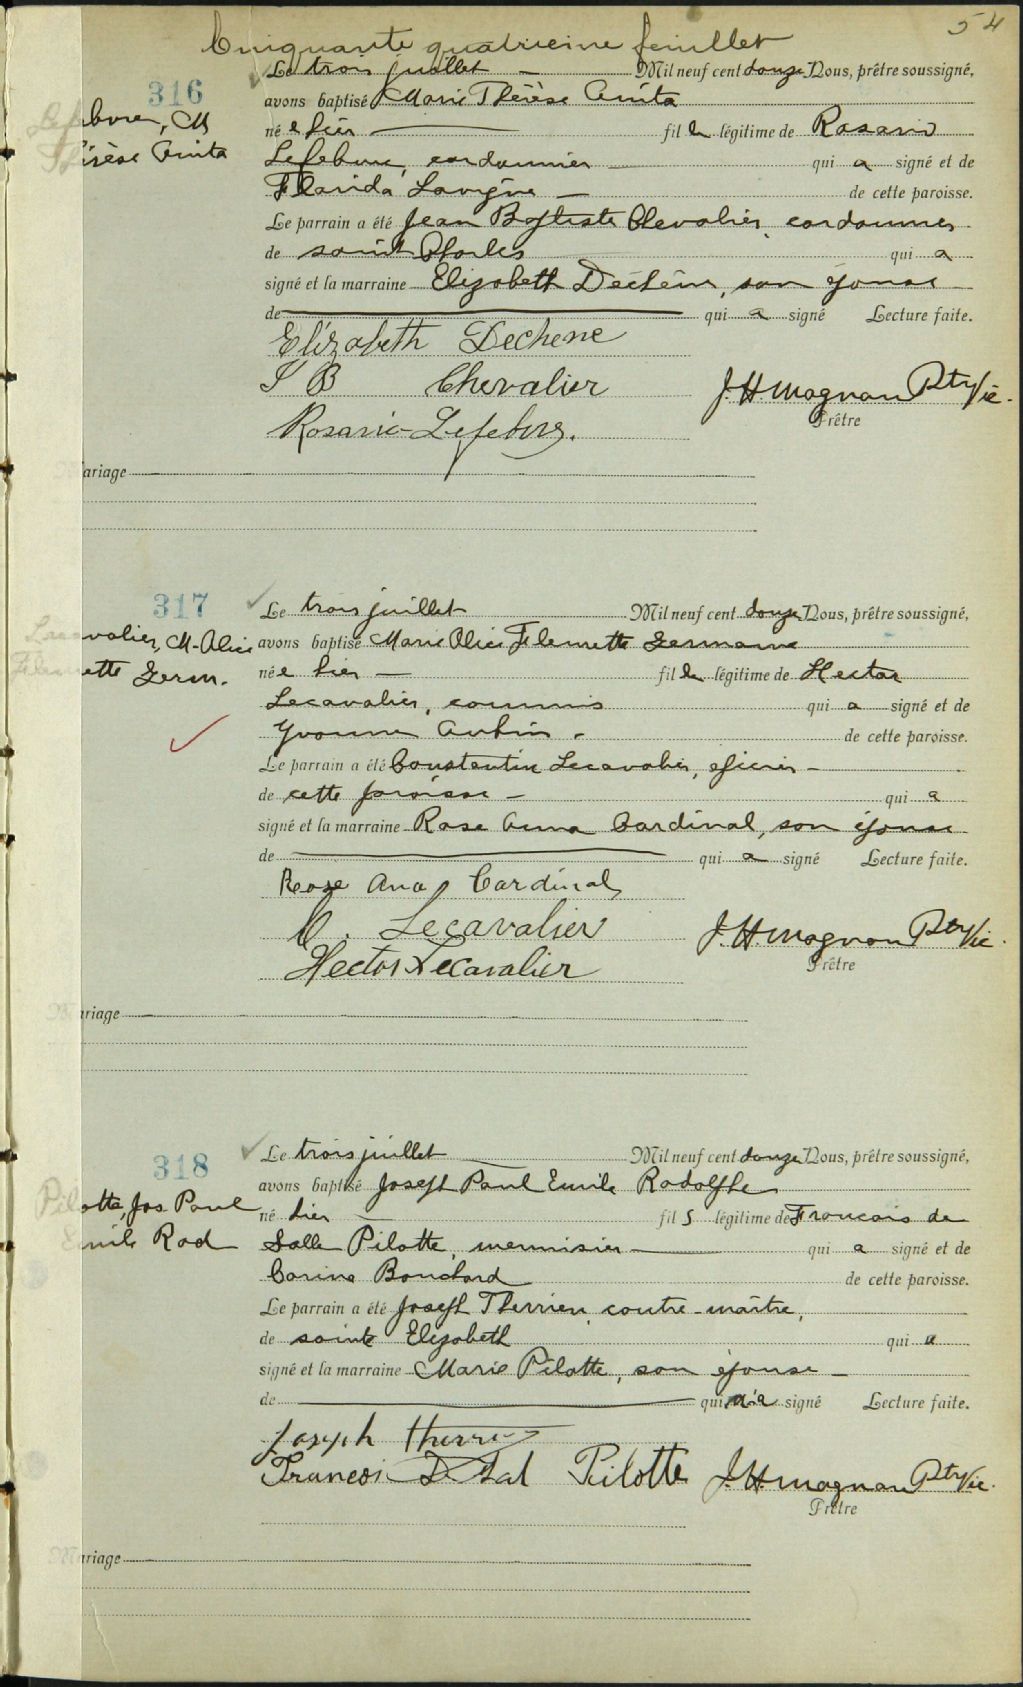 Cinquante quatrieme feuillet
54
316
Lefebvre, M
Thérèse Anita
Le trois juillet — Mil neuf cent douze Nous, prêtre soussigné,
avons baptisé Marie Thérèse Anita
né e hier — fil le légitime de Rosario
Lefebvre, cordonnier — qui a signé et de
Florida Lavigne — de cette paroisse.
Le parrain a été Jean Baptiste Chevalier, cordonnier
de saint Charles qui a
signé et la marraine Elizabeth Dechêne, son épouse
de — qui a signé Lecture faite.
Elizabeth Dechene
J B Chevalier
J. H. Magnan Ptre Vic.
Prêtre
Rosario Lefebvre.
Mariage
317
Lecavalier, M-Alice
Fleurette Germ.
Le trois juillet Mil neuf cent douze Nous, prêtre soussigné,
avons baptisé Marie Alice Fleurette Germaine
né e hier — fil le légitime de Hector
Lecavalier, commis qui a signé et de
Yvonne Aubin - de cette paroisse.
Le parrain a été Constantin Lecavalier, épicier —
de cette paroisse — qui a
signé et la marraine Rose Anna Cardinal, son épouse
de — qui a signé Lecture faite.
Rose Ana Cardinal
C. Lecavalier
J. H. Magnan Ptre Vic.
Prêtre
Hector Lecavalier
Mariage
318
Pilotte, Jos Paul
Emile Rod
Le trois juillet Mil neuf cent douze Nous, prêtre soussigné,
avons baptisé Joseph Paul Emile Rodolphe
né hier — fil s légitime de Francois de
Salle Pilotte, menuisier — qui a signé et de
Corine Bouchard de cette paroisse.
Le parrain a été Joseph Therrien, contre-maître,
de sainte Elizabeth qui a
signé et la marraine Marie Pilotte, son épouse —
de — qui n'a signé Lecture faite.
Joseph Therrien
Francois D Sal Pilotte
J. H. Magnan Ptre Vic.
Prêtre
Mariage